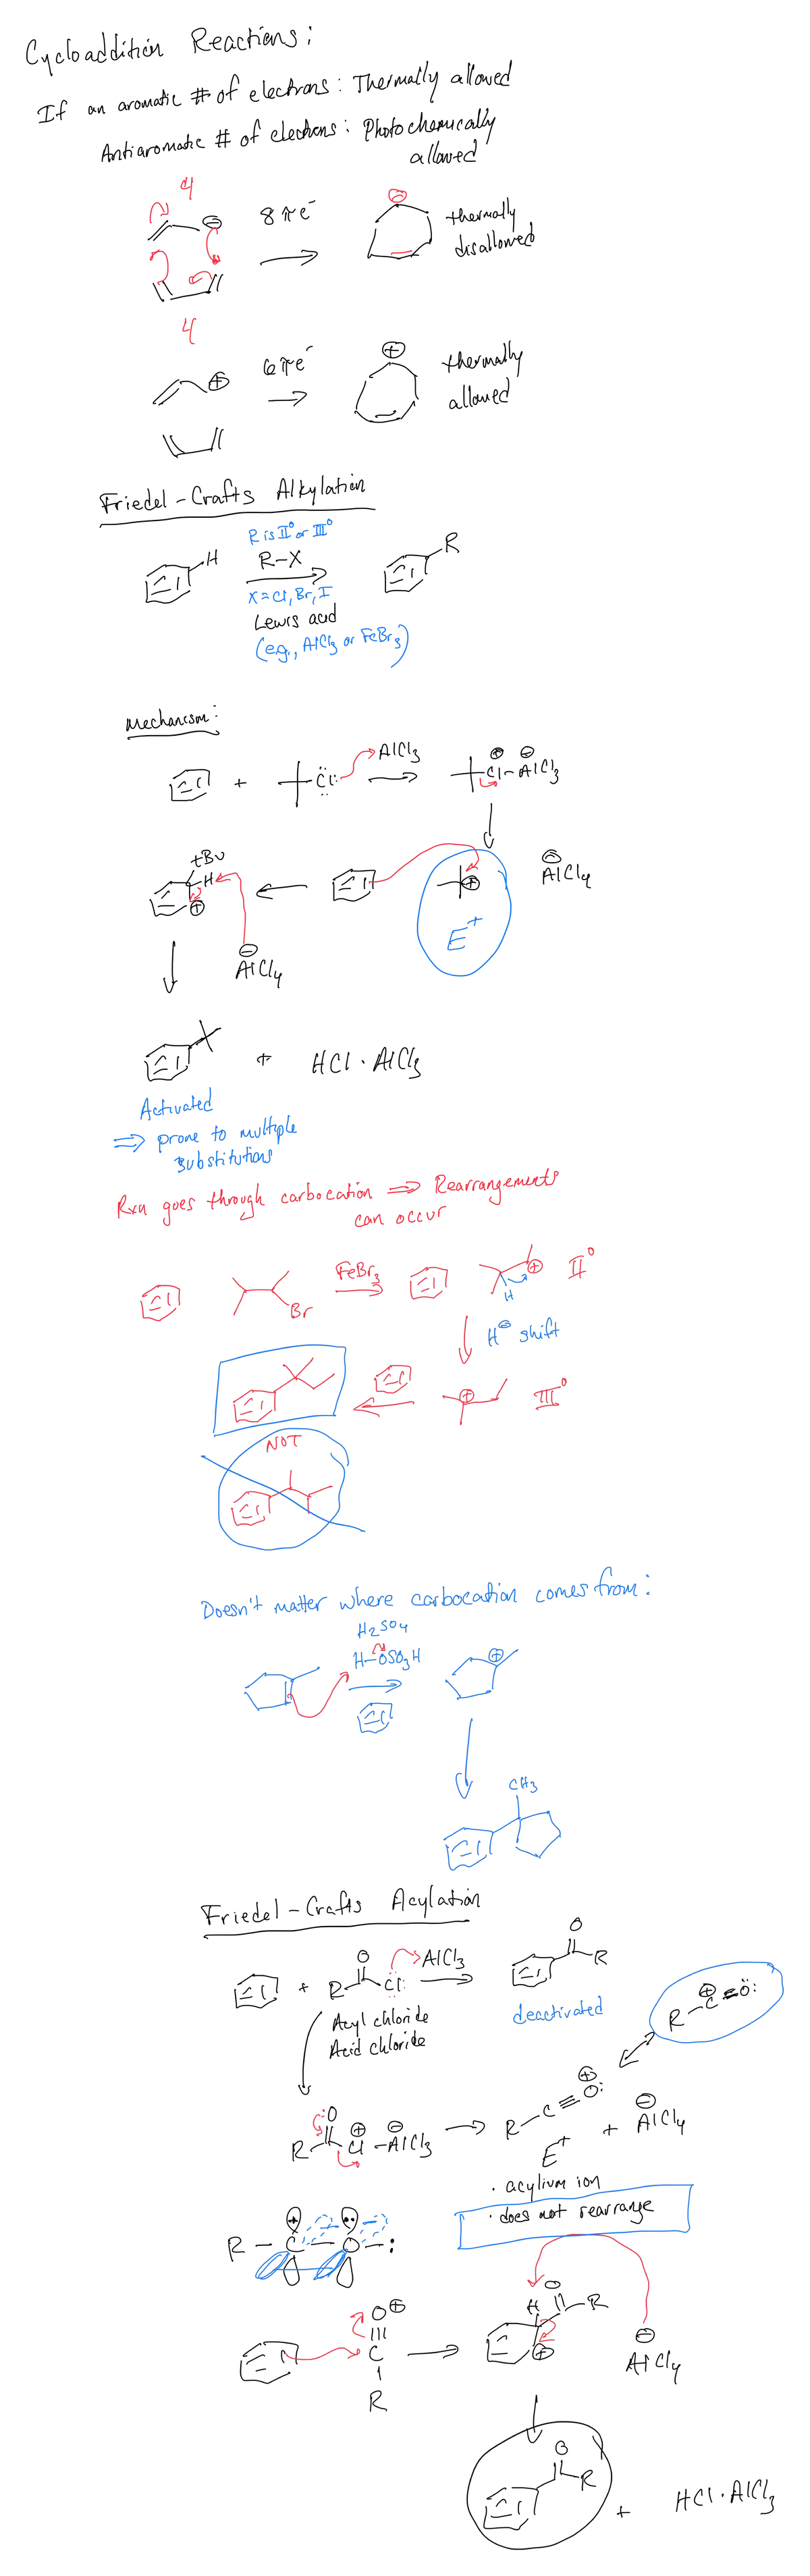 Cycloaddition Reactions:
If an aromatic # of electrons: Thermally allowed
Antiaromatic # of electrons: Photochemically
allowed
4
⊖
8πe⁻
⊖
thermally
disallowed
4
⊕
6πe⁻
⊕
thermally
allowed
Friedel-Crafts Alkylation
R is II° or III°
H
R-X
R
X=Cl, Br, I
Lewis acid
(e.g., AlCl3 or FeBr3)
Mechanism:
+
Cl:
AlCl3
⊕ ⊖
Cl-AlCl3
tBu
H
⊕
⊕
⊖
AlCl4
E+
⊖
AlCl4
+ HCl · AlCl3
Activated
⇒ prone to multiple
substitutions
Rxn goes through carbocation ⇒ Rearrangements
can occur
Br
FeBr3
⊕
H
II°
H⊖ shift
⊕
III°
NOT
Doesn't matter where carbocation comes from:
H2SO4
H-OSO3H
⊕
CH3
Friedel-Crafts Acylation
O
+ R Cl:
AlCl3
O
R
deactivated
Acyl chloride
Acid chloride
R-C=Ö:
⊕
:O
R Cl-AlCl3
⊕ ⊖
R-C≡O:
⊕
+ AlCl4
⊖
E+
· acylium ion
· does not rearrange
R-C-O-:
+ ··
O⊕
C
R
H O
R
⊕
⊖
AlCl4
O
R
+ HCl·AlCl3